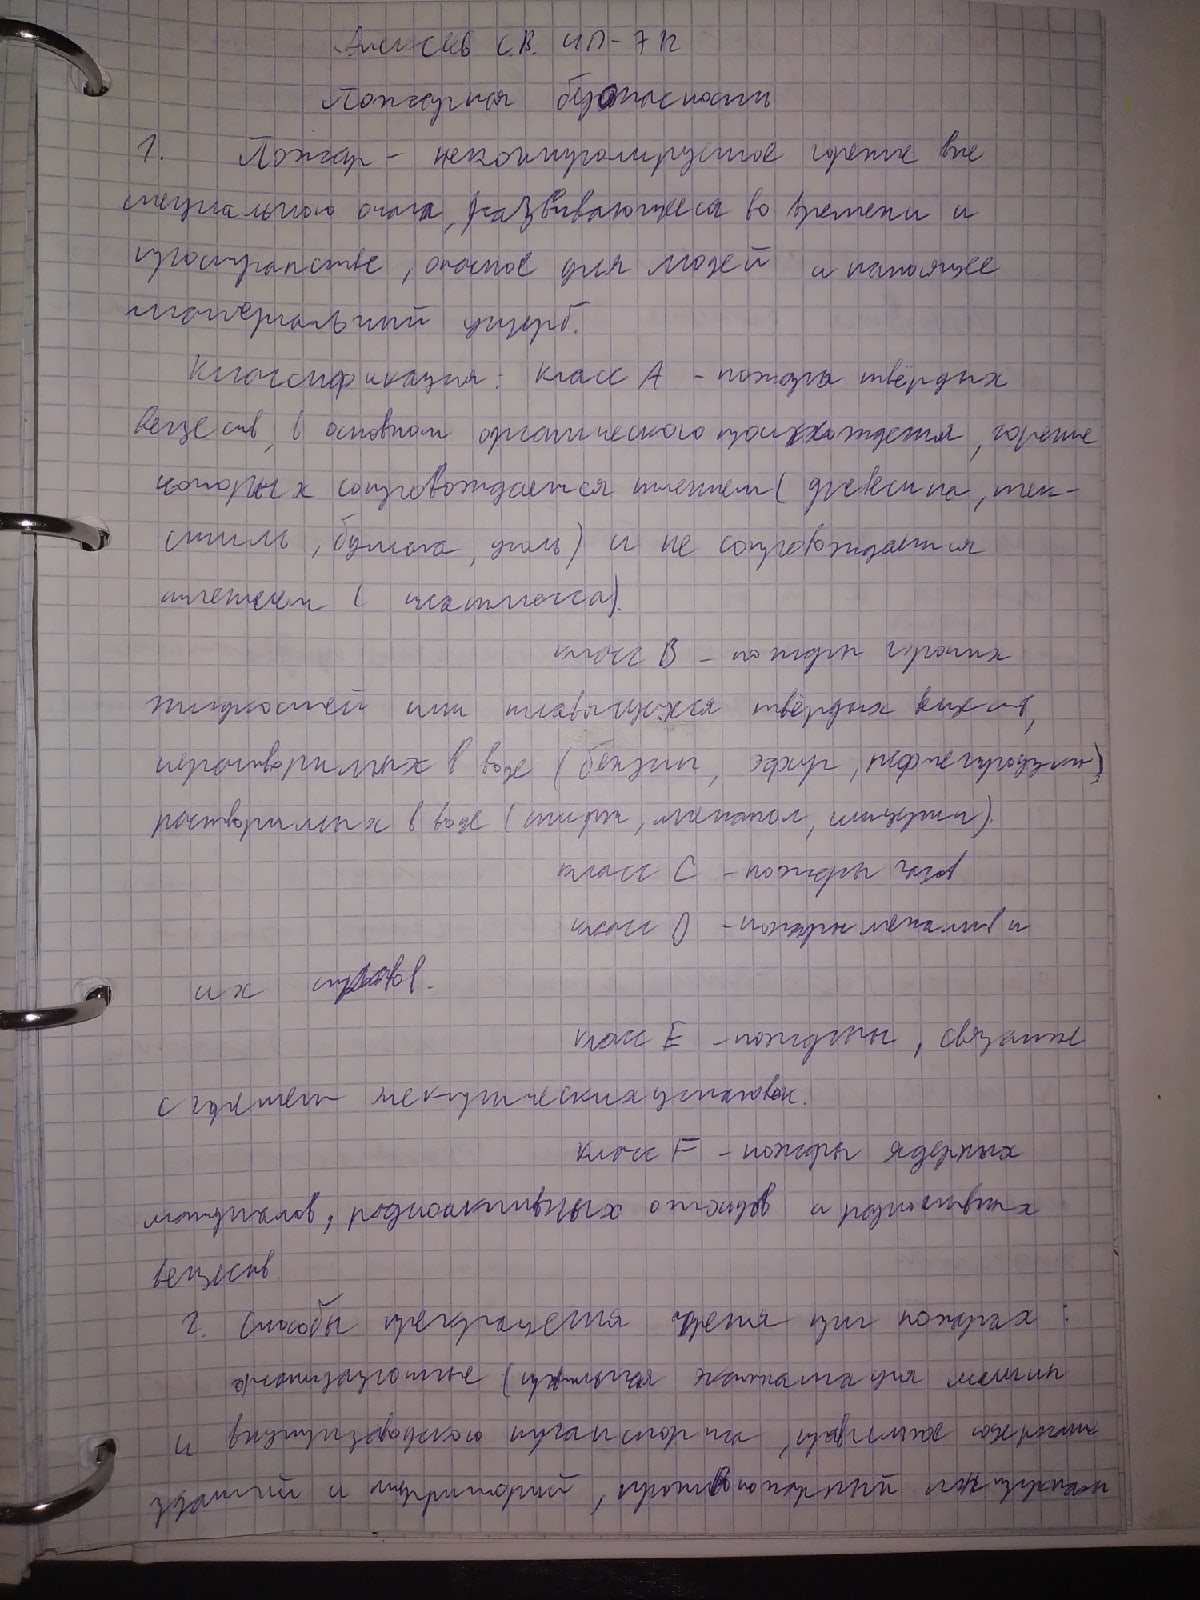 Алексеев С.В. ИП-7К
Пожарная безопасность
1. Пожар - неконтролируемое горение вне
специального очага, развивающееся во времени и
пространстве, опасное для людей и наносящее
материальный ущерб.
Классификация: класс А - пожары твёрдых
веществ, в основном органического происхождения, горение
которых сопровождается тлением (древесина, тек-
стиль, бумага, уголь) и не сопровождается
тлением (пластмасса).
класс B - пожары горючих
жидкостей или плавящихся твёрдых
нерастворимых в воде (бензин, эфир, нефтепродукты),
растворимых в воде (спирт, метанол, глицерин).
класс C - пожары газов
класс D - пожары металлов и
их сплавов.
класс E - пожары, связанные
с горением электрических установок.
класс F - пожары ядерных
материалов, радиоактивных отходов и радиоактивных
веществ
2. Способы прекращения горения при пожарах:
организационные (правильная эксплуатация машин
и внутризаводского транспорта, правильное содержание
зданий и территорий, противопожарный инструктаж